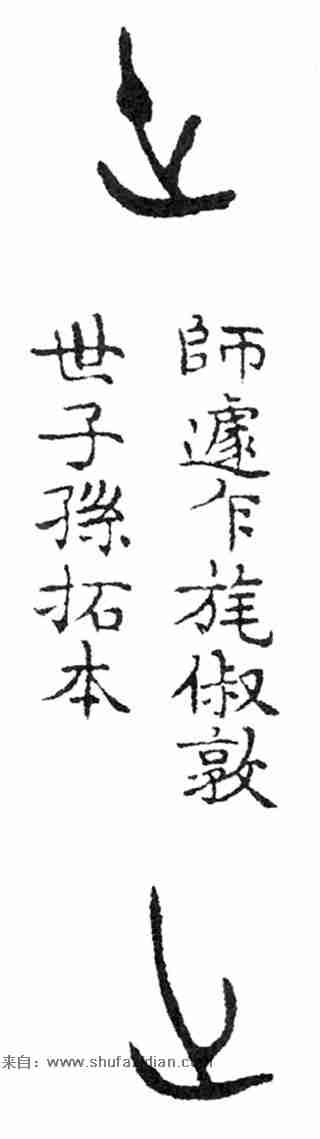 師遽乍旄俶敦
世子孫拓本
来自：www.shufazidian.com